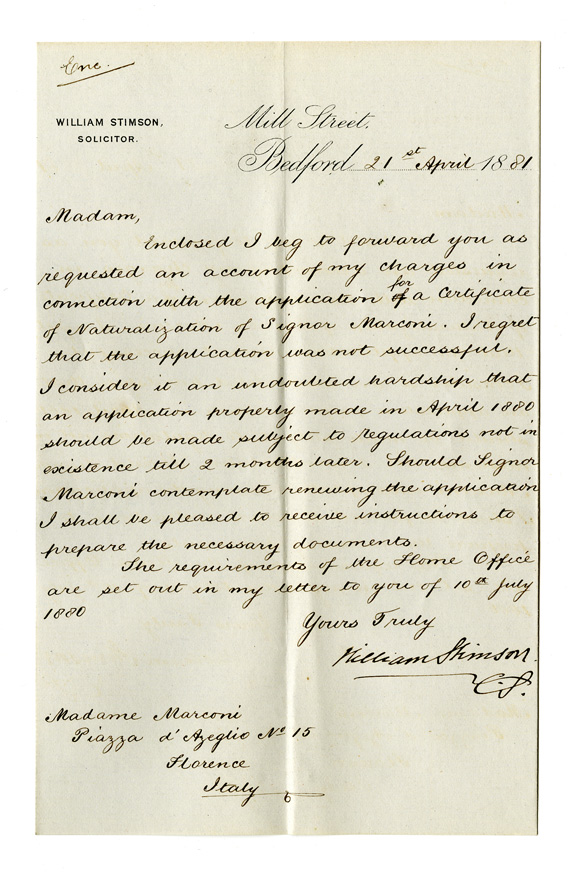 Enc.
WILLIAM STIMSON,
SOLICITOR.
Mill Street.
Bedford 21st April 1881
Madam,
Enclosed I beg to forward you as
requested an account of my charges in
connection with the application for a Certificate
of Naturalization of Signor Marconi. I regret
that the application was not successful.
I consider it an undoubted hardship that
an application properly made in April 1880
should be made subject to regulations not in
existence till 2 months later. Should Signor
Marconi contemplate renewing the application
I shall be pleased to receive instructions to
prepare the necessary documents.
The requirements of the Home Office
are set out in my letter to you of 10th July
1880
Yours Truly
William Stimson.
Madame Marconi
Piazza d'Azeglio No 15
Florence
Italy